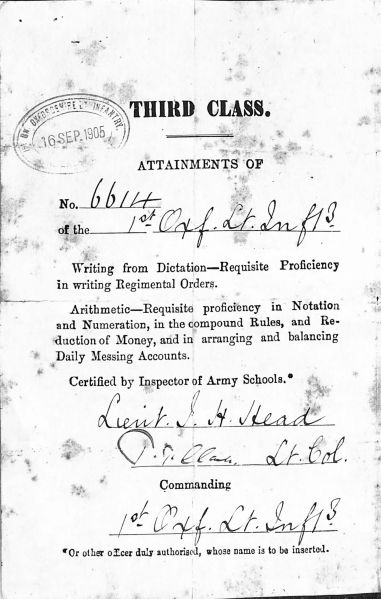 OXFORDSHIRE LT INFANTRY.
16 SEP. 1905
THIRD CLASS.
ATTAINMENTS OF
No. 6614
of the 1st Oxf. Lt. Inft
Writing from Dictation—Requisite Proficiency
in writing Regimental Orders.
Arithmetic—Requisite proficiency in Notation
and Numeration, in the compound Rules, and Re-
duction of Money, and in arranging and balancing
Daily Messing Accounts.
Certified by Inspector of Army Schools.*
Lieut. J. H. Head
Lt. Col.
Commanding
1st Oxf. Lt. Inft
*Or other officer duly authorised, whose name is to be inserted.